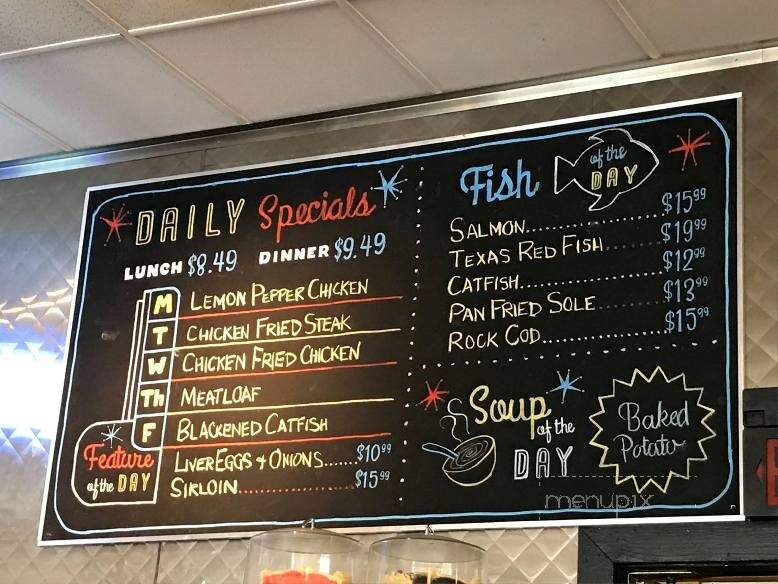 DAILY Specials
LUNCH $8.49 DINNER $9.49
M LEMON PEPPER CHICKEN
T CHICKEN FRIED STEAK
W CHICKEN FRIED CHICKEN
Th MEATLOAF
F BLACKENED CATFISH
Feature of the DAY
LIVER EGGS & ONIONS.......$10.99
SIRLOIN.................$15.99
Fish of the DAY
SALMON...................$15.99
TEXAS RED FISH...........$19.99
CATFISH..................$12.99
PAN FRIED SOLE...........$13.99
ROCK COD.................$15.99
Soup of the DAY
Baked
Potato
menupix